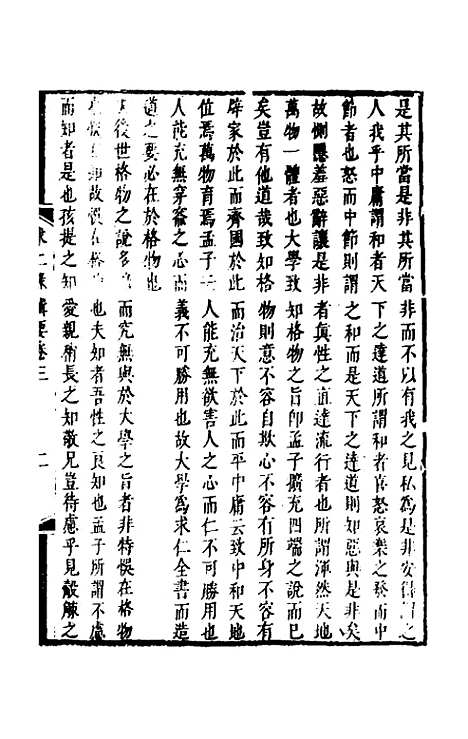 是其所當是非其所當非而不以有我之見私為是非安得謂之
人我乎中庸謂和者天下之達道所謂和者喜怒哀樂之發而中
節者也怒而中節則謂之和而是天下之達道則知惡與是非矣
故惻隱羞惡辭讓是非者真性之直達流行者也所謂渾然天地
萬物一體者也大學致知格物之旨卽孟子擴充四端之說而已
矣豈有他道哉致知格物則意不容自欺心不容有所身不容有
辟家於此而齊國於此而治天下於此而平中庸云致中和天地
位焉萬物育焉孟子云人能充無欲害人之心而仁不可勝用也
人能充無穿窬之心而義不可勝用也故大學為求仁全書而造
道之要必在於格物也
後世格物之說多而究無與於大學之旨者非特悞在格物
悞故誤在格物也夫知者吾性之良知也孟子所謂不慮
而知者是也孩提之知愛親稍長之知敬兄豈待慮乎見觳觫之
求仁錄輯要卷三 二